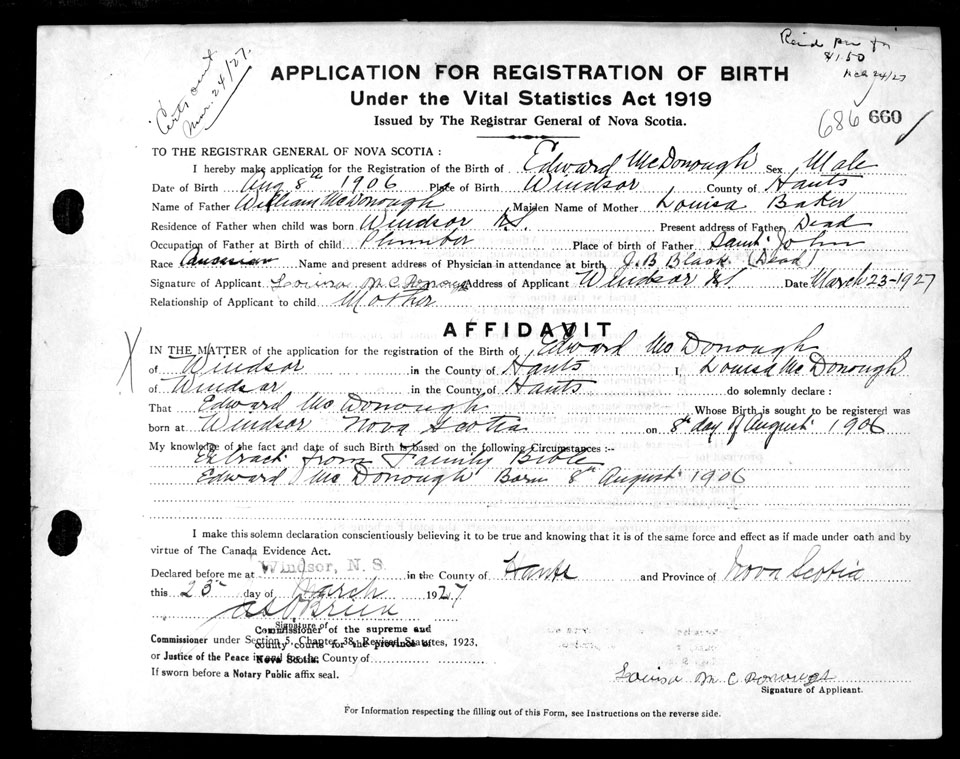 Certs sent
Mar. 24/27.
$1.50
Mch 24/27
APPLICATION FOR REGISTRATION OF BIRTH
Under the Vital Statistics Act 1919
Issued by The Registrar General of Nova Scotia.
686 660
TO THE REGISTRAR GENERAL OF NOVA SCOTIA :
I hereby make application for the Registration of the Birth of Edward McDonough Sex Male
Date of Birth Aug 8th 1906 Place of Birth Windsor County of Hants
Name of Father William McDonough Maiden Name of Mother Louisa Baker
Residence of Father when child was born Windsor N.S. Present address of Father Dead
Occupation of Father at Birth of child Plumber Place of birth of Father Saint John
Race Causesian Name and present address of Physician in attendance at birth J. B Black (Dead)
Signature of Applicant Louisa McDonough Address of Applicant Windsor N.S. Date March 23-1927
Relationship of Applicant to child Mother
AFFIDAVIT
IN THE MATTER of the application for the registration of the Birth of Edward McDonough
of Windsor in the County of Hants I, Louisa McDonough
of Windsor in the County of Hants do solemnly declare :
That Edward McDonough Whose Birth is sought to be registered was
born at Windsor Nova Scotia on 8th day of August 1906
My knowledge of the fact and date of such Birth is based on the following Circumstances :--
Extract from Family Bible
Edward McDonough Born 8th August 1906
I make this solemn declaration conscientiously believing it to be true and knowing that it is of the same force and effect as if made under oath and by
virtue of The Canada Evidence Act.
Declared before me at Windsor, N. S. in the County of Hants and Province of Nova Scotia
this 23rd day of March 1927
Signature of
Commissioner of the supreme and
county courts for the province of
Nova Scotia.
Commissioner under Section 5, Chapter 38, Revised Statutes, 1923,
or Justice of the Peace in and for the County of
If sworn before a Notary Public affix seal.
Louisa McDonough
Signature of Applicant.
For Information respecting the filling out of this Form, see Instructions on the reverse side.